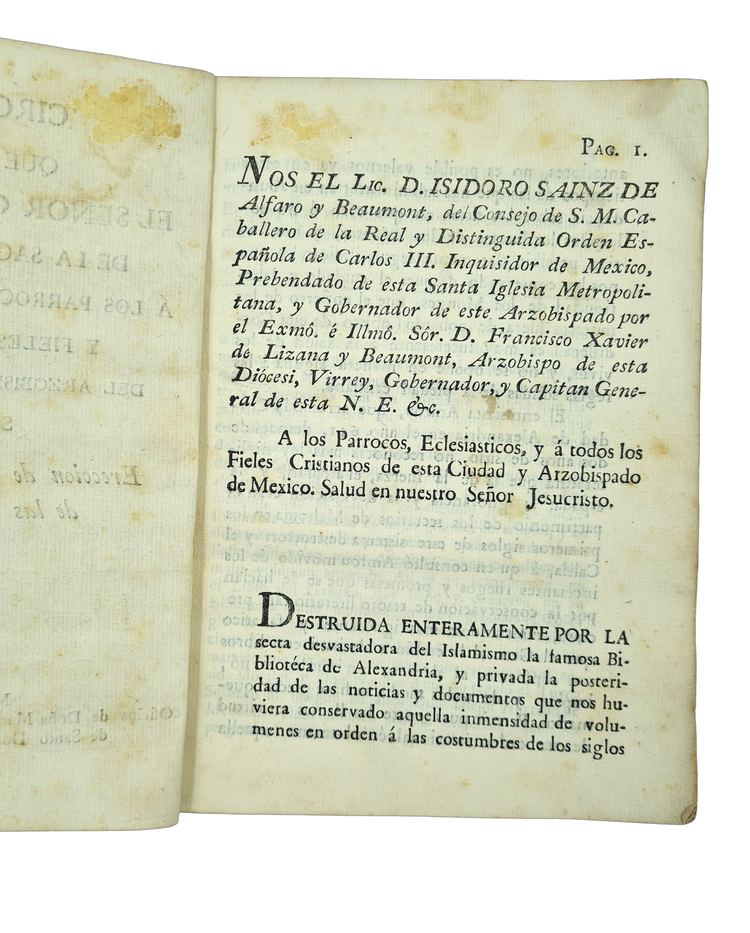 PAG. 1.
NOS EL LIC. D. ISIDORO SAINZ DE
Alfaro y Beaumont, del Consejo de S. M. Ca-
ballero de la Real y Distinguida Orden Es-
pañola de Carlos III. Inquisidor de Mexico,
Prebendado de esta Santa Iglesia Metropoli-
tana, y Gobernador de este Arzobispado por
el Exmô. é Illmô. Sôr. D. Francisco Xavier
de Lizana y Beaumont, Arzobispo de esta
Diócesi, Virrey, Gobernador, y Capitan Gene-
ral de esta N. E. &c.
A los Parrocos, Eclesiasticos, y á todos los
Fieles Cristianos de esta Ciudad y Arzobispado
de Mexico. Salud en nuestro Señor Jesucristo.
DESTRUIDA ENTERAMENTE POR LA
secta desvastadora del Islamismo la famosa Bi-
bliotéca de Alexandria, y privada la posteri-
dad de las noticias y documentos que nos hu-
viera conservado aquella inmensidad de volu-
menes en orden á las costumbres de los siglos